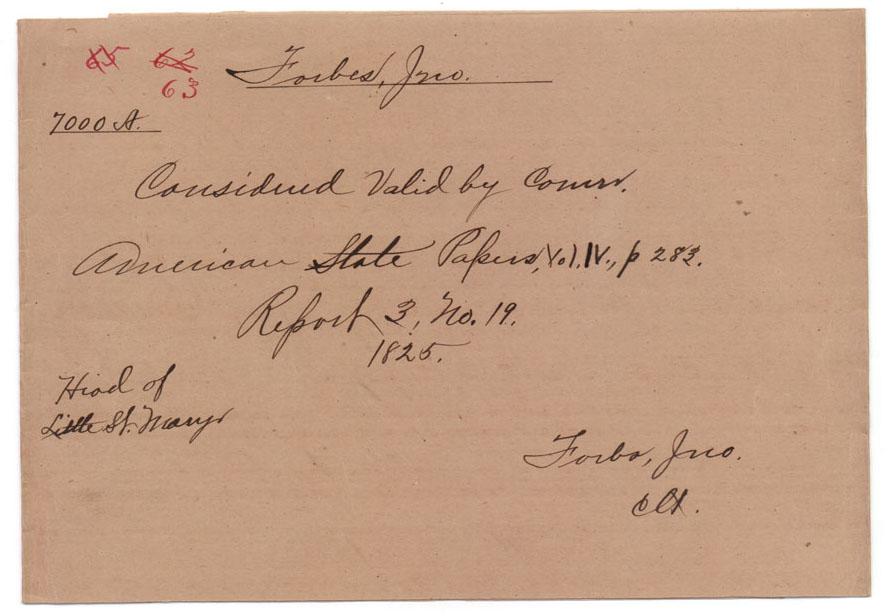 65 62
63
Forbes, Jno.
7000 A.
Considered Valid by Comrs.
American State Papers, Vol. IV., p 283.
Report 3, No. 19.
1825.
Head of
Little St. Marys
Forbs, Jno.
Clt.